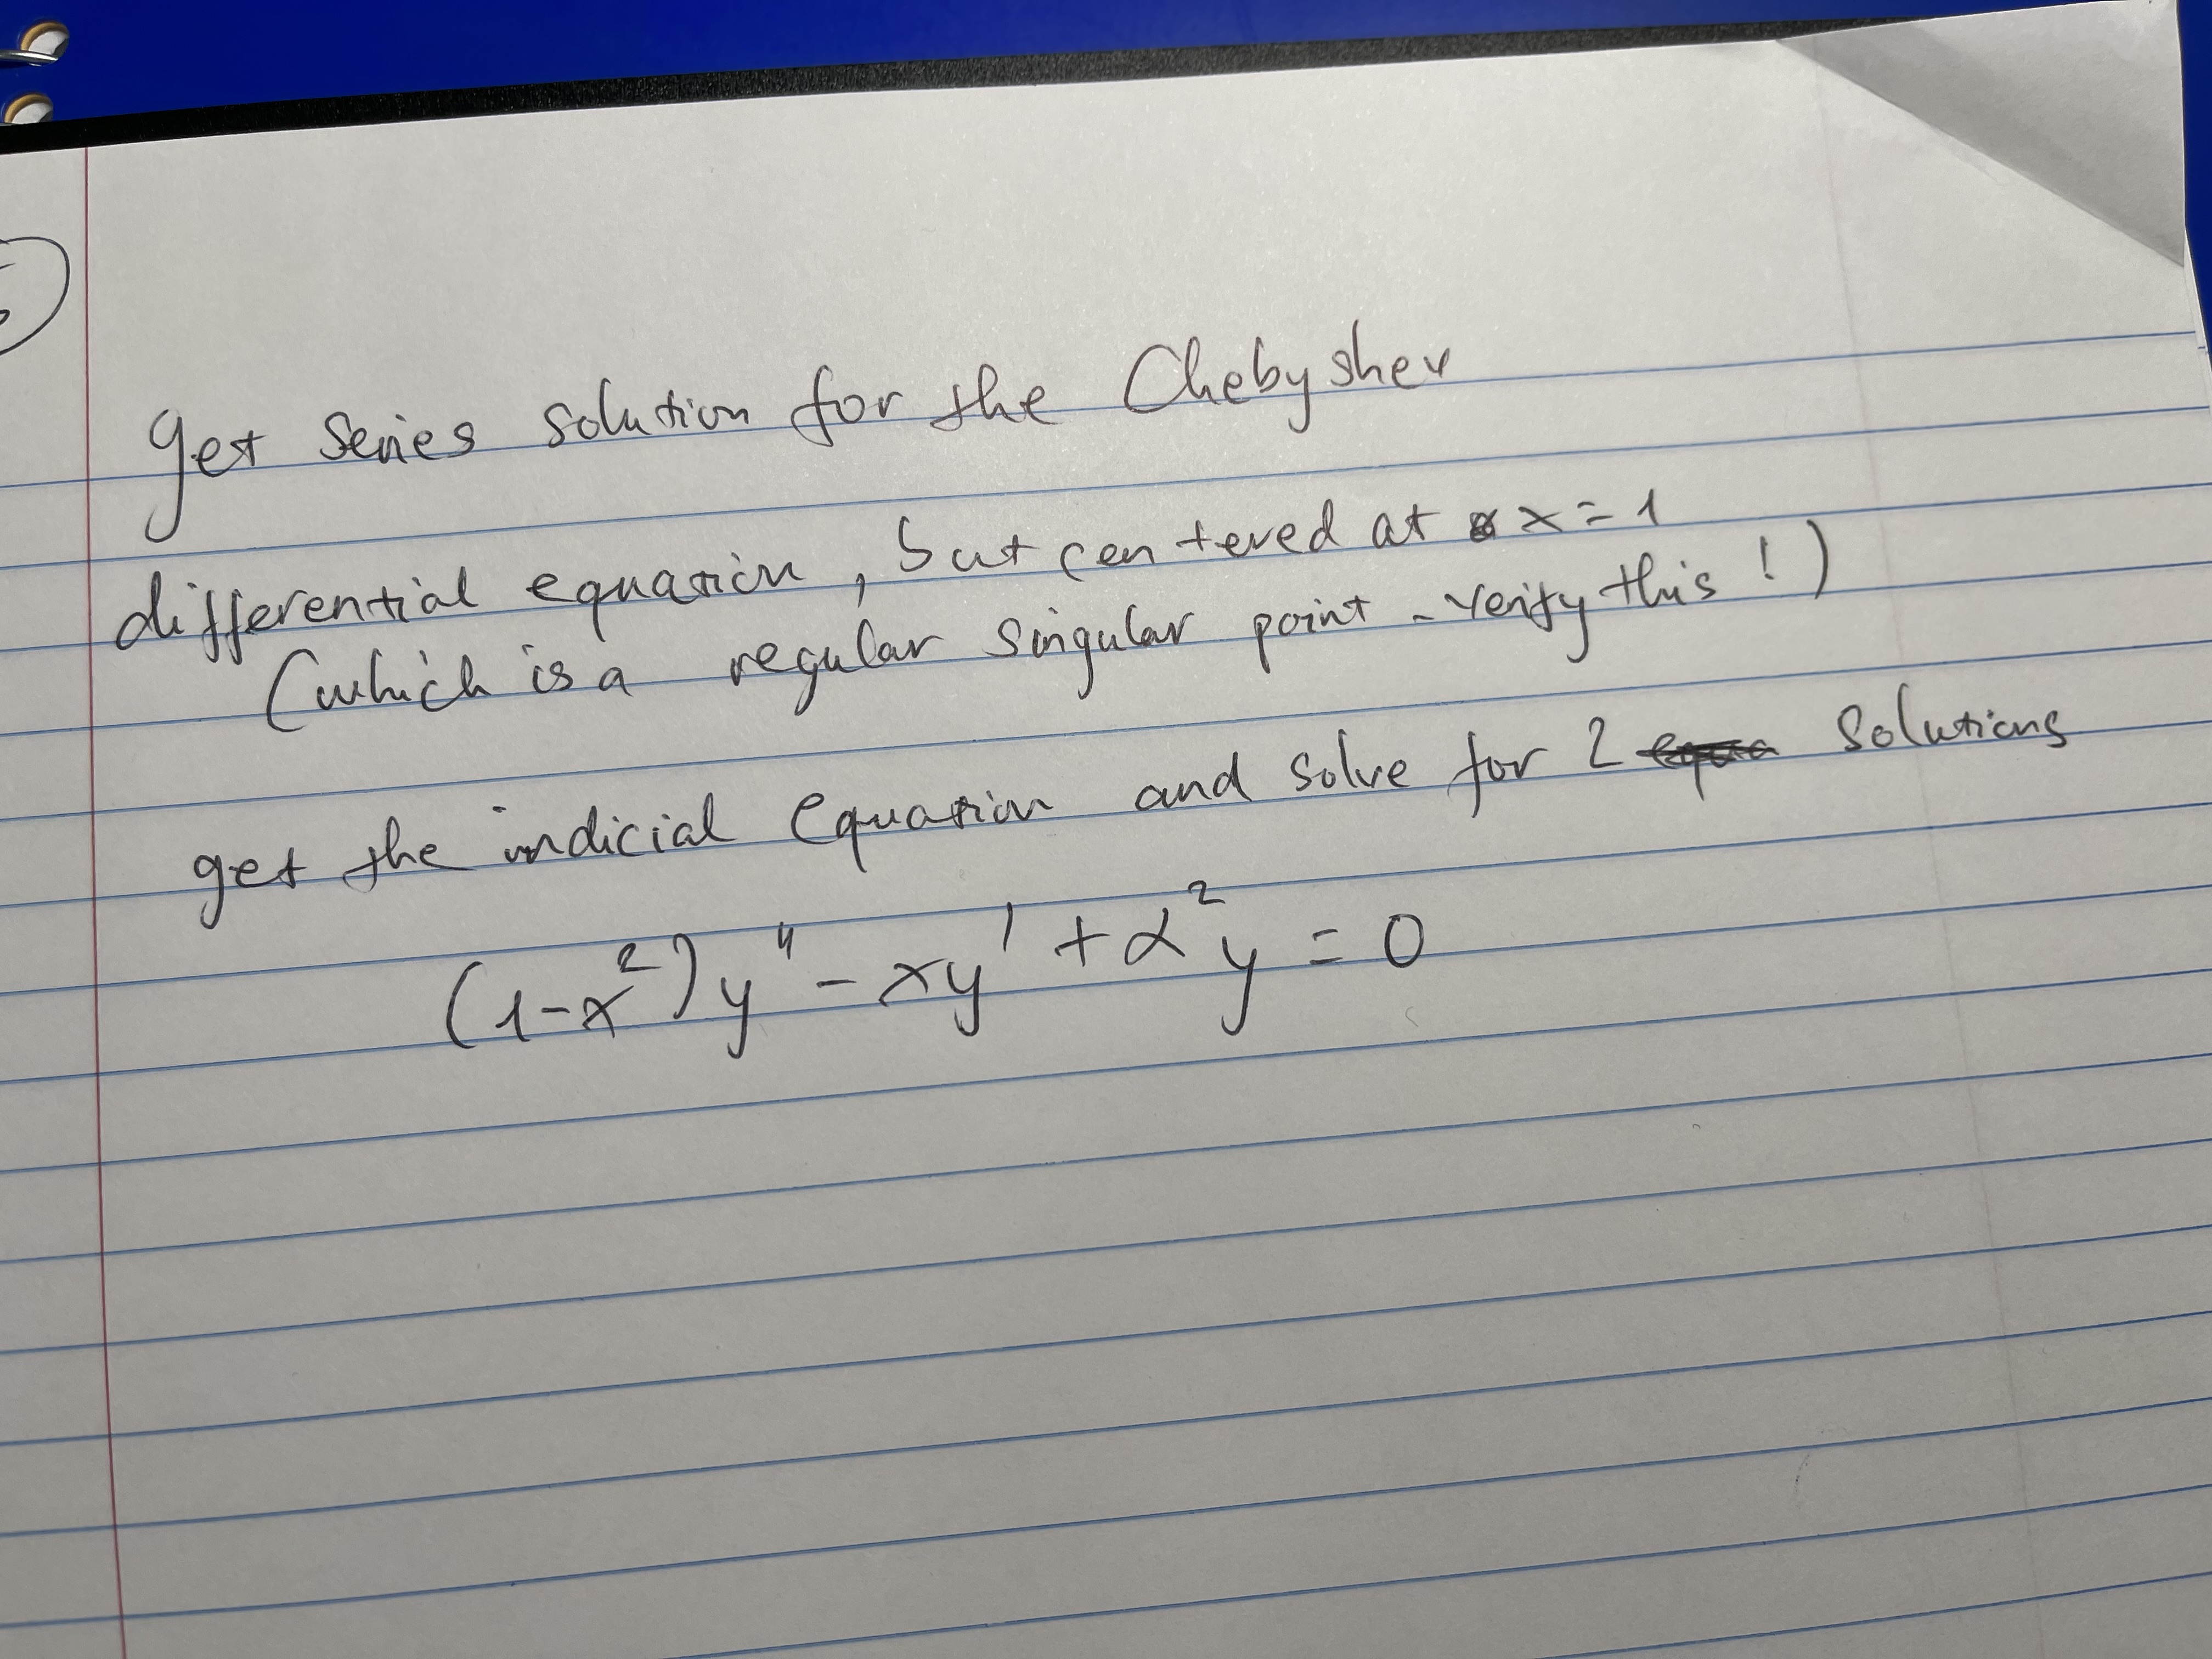 get series solution for the Chebyshev
differential equation, but centered at x=1
(which is a regular singular point - verify this!)
get the indicial equation and solve for 2 solutions
(1-x²)y" - xy' + α²y = 0